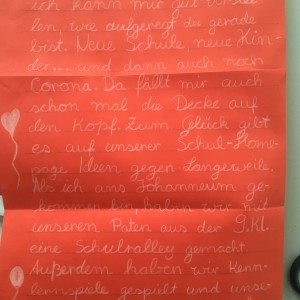 ich kann mir gut vorstel-
len, wie aufgeregt du gerade
bist. Neue Schule, neue Kin-
der... und dann auch noch
Corona. Da fällt mir auch
schon mal die Decke auf
den Kopf. Zum Glück gibt
es auf unserer Schul-Home-
page Ideen gegen Langeweile.
Als ich ans Johanneum ge-
kommen bin, haben wir mit
unseren Paten aus der 9.Kl.
eine Schulralley gemacht.
Außerdem haben wir Kenn-
lernspiele gespielt und unse-